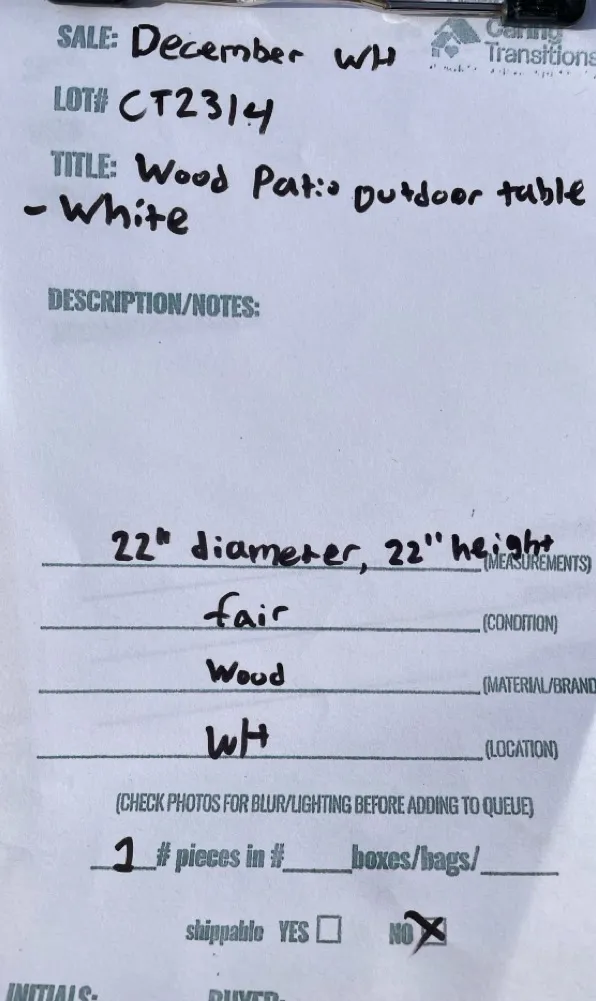 Caring
SALE: December WH
Transitions
LOT# CT2314
TITLE: Wood Patio Outdoor table
- White
DESCRIPTION/NOTES:
22" diameter, 22" height (MEASUREMENTS)
fair (CONDITION)
Wood (MATERIAL/BRAND
WH (LOCATION)
(CHECK PHOTOS FOR BLUR/LIGHTING BEFORE ADDING TO QUEUE)
1 # pieces in #____ boxes/bags/____
shippable YES ☐ NO ☒
INITIALS: BUYER: